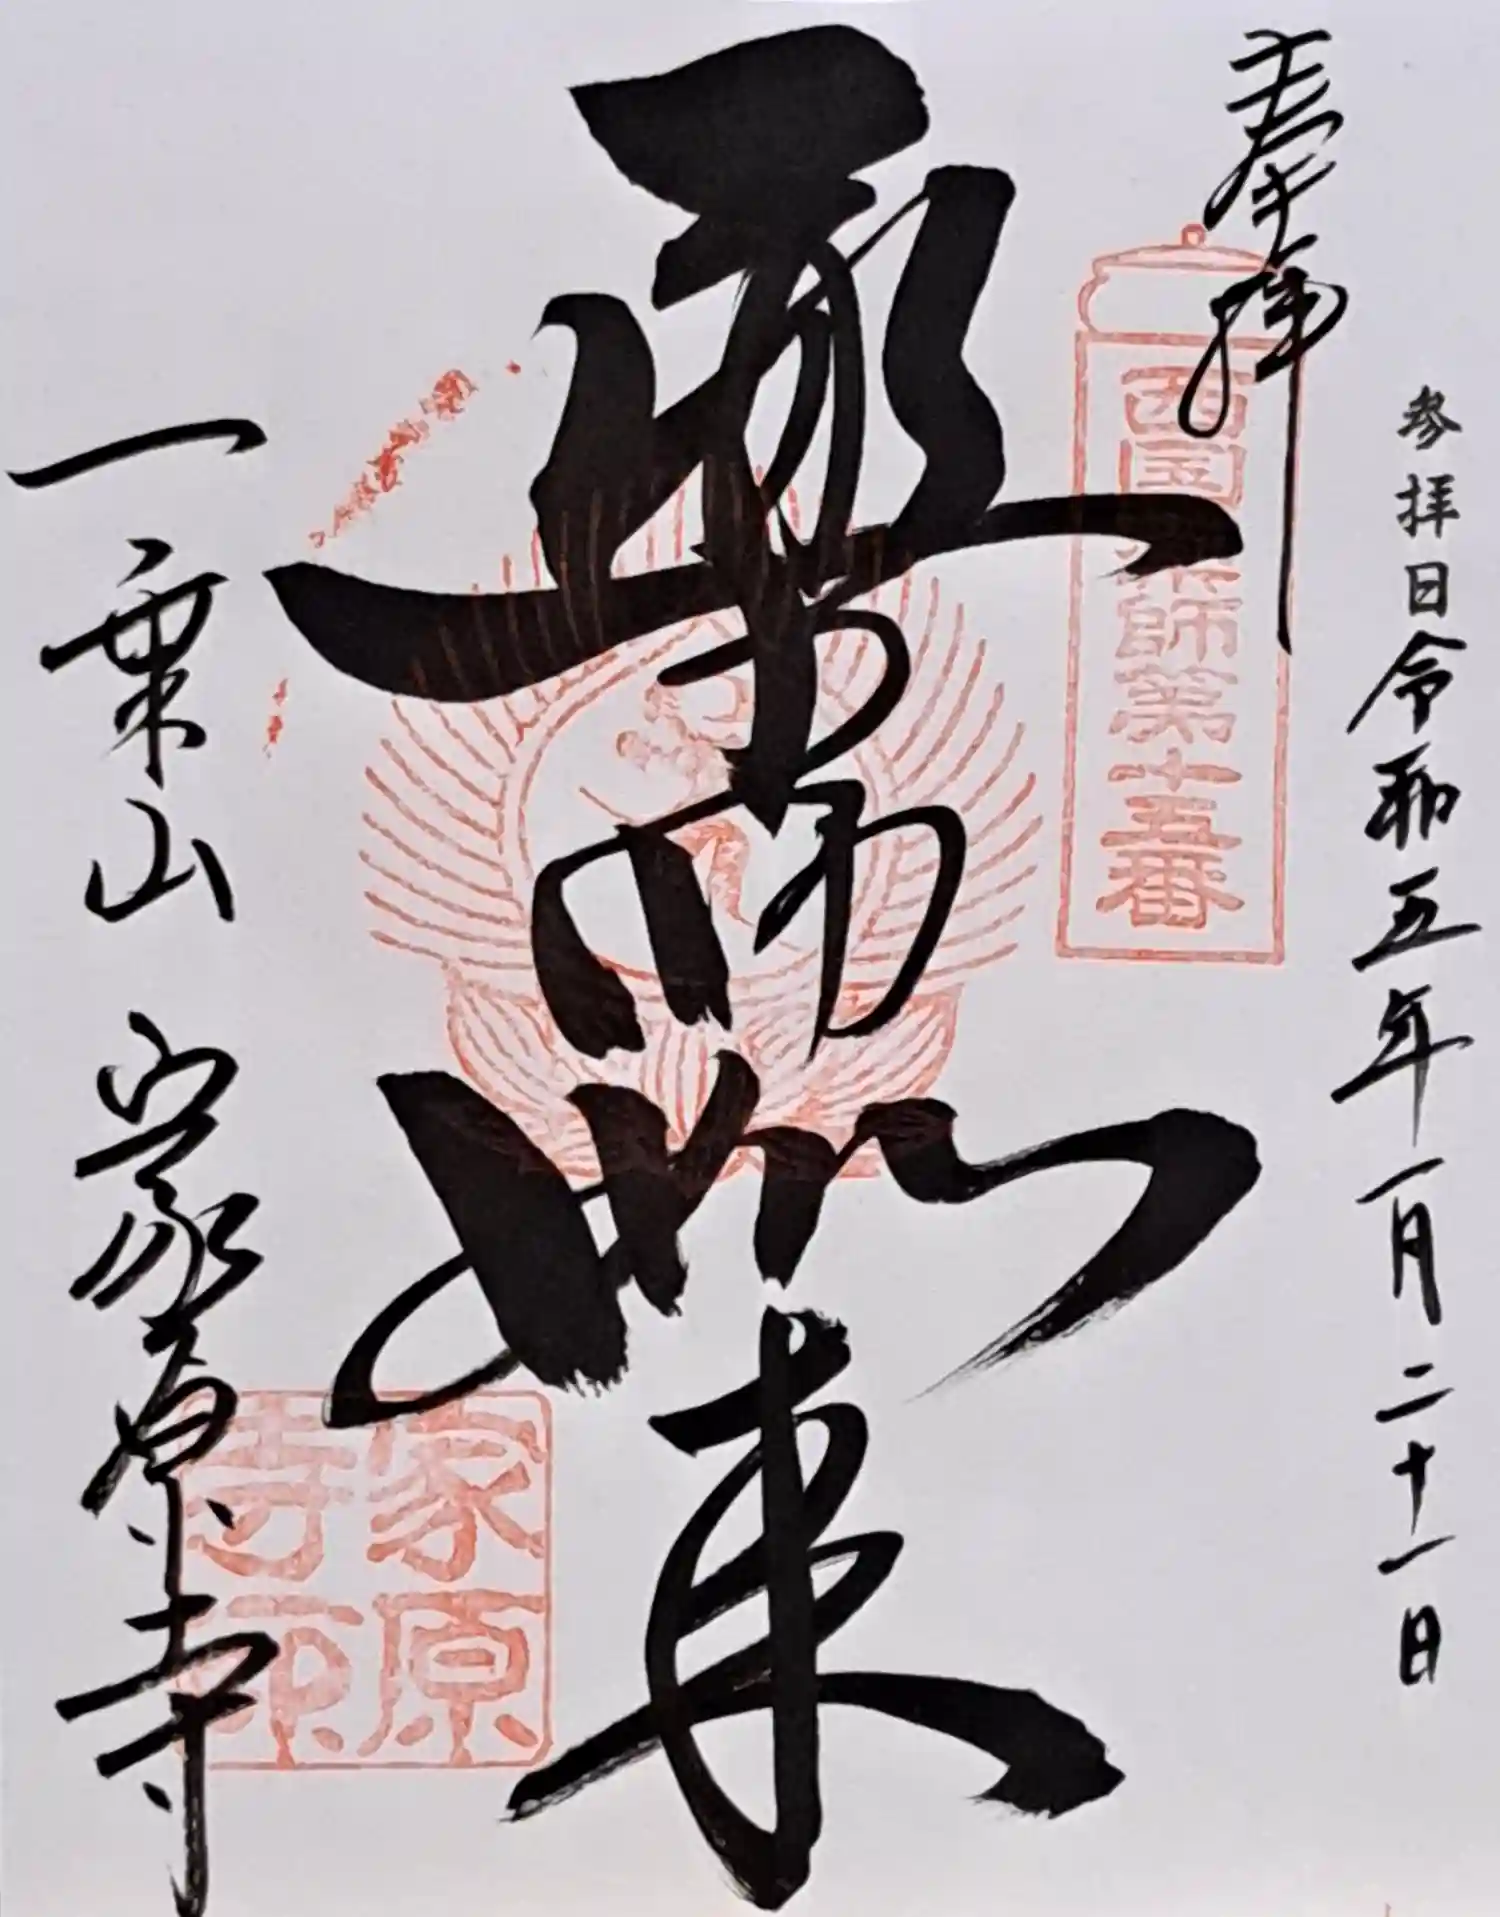 参拝日令和五年一月二十一日
奉拝
西国薬師第十五番
薬師如来
一乗山 家原寺
家原寺印